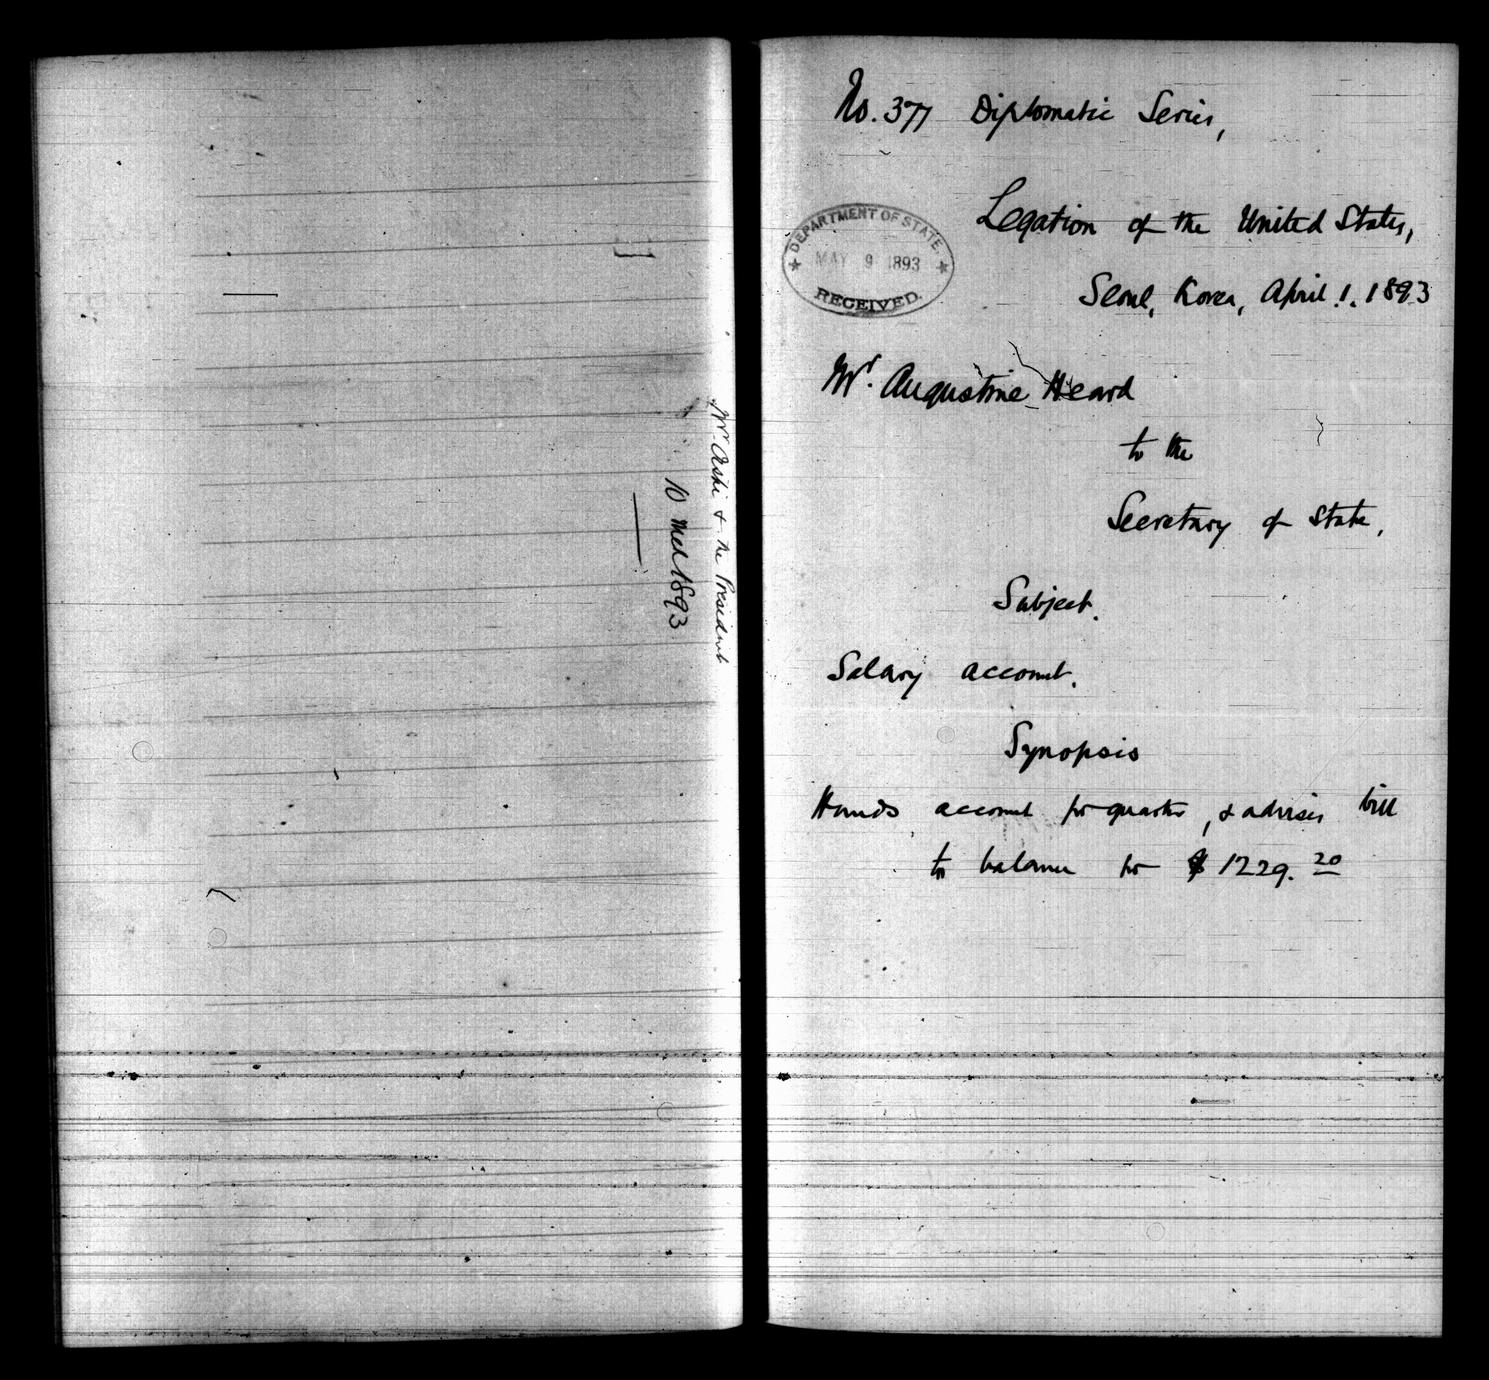 Mr. & the President
10 Mch 1893
No. 377 Diplomatic Series,
Legation of the United States,
Seoul, Korea, April 1. 1893
DEPARTMENT OF STATE.
MAY 9 1893
RECEIVED.
Mr. Augustine Heard
to the
Secretary of State,
Subject.
Salary account.
Synopsis
Hands account for quarter, & advises bill
to balance for $1229.20